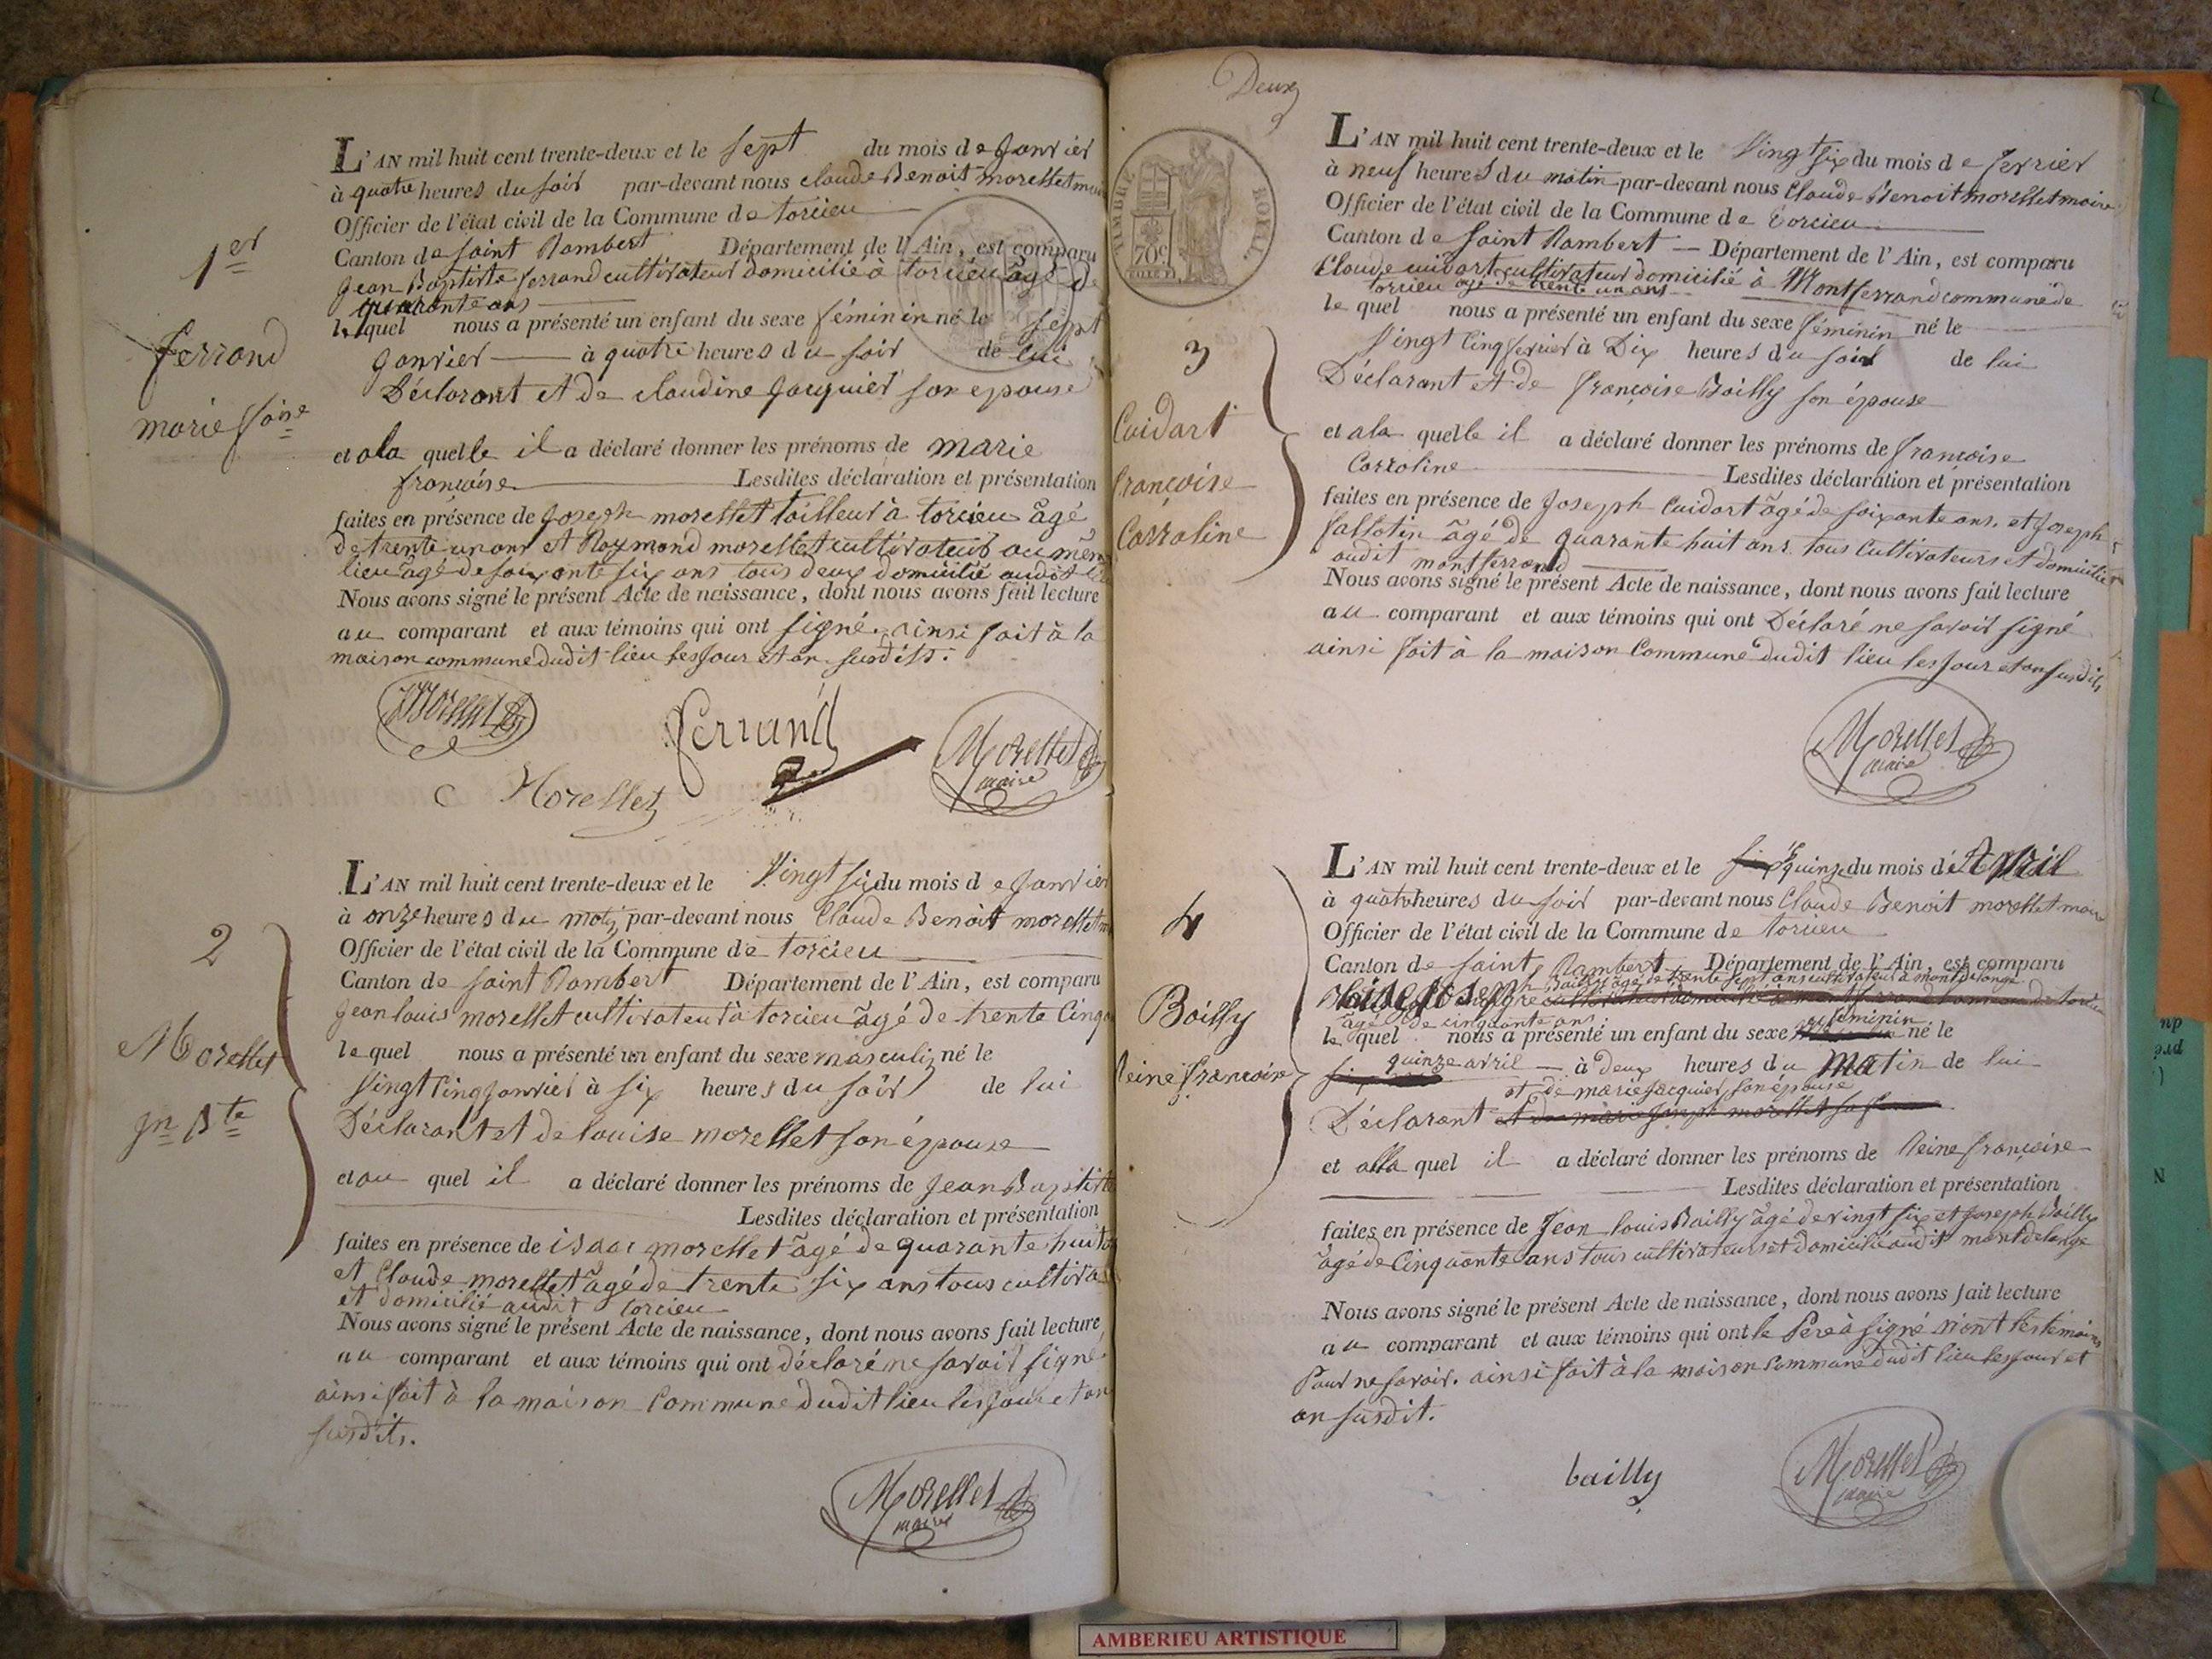 1er
ferrand
marie fçoise
L'AN mil huit cent trente-deux et le sept du mois de Janvier
à quatre heures du soir par-devant nous claude Benoit morellet
Officier de l'état civil de la Commune de torcieu
Canton de saint Rambert Département de l'Ain, est comparu
Jean Baptiste ferrand cultivateur domicilié à torcieu âgé de
quarante ans
lequel nous a présenté un enfant du sexe féminin né le sept
janvier à quatre heures du soir de lui
Déclarant et de claudine Jacquier son epouse
et a la quelle il a déclaré donner les prénoms de marie
françoise Lesdites déclaration et présentation
faites en présence de Joseph morellet tailleur à torcieu âgé
de trente un ans et Raymond morellet cultivateur au même
lieu âgé de soixante six ans tous deux domicilié audit
Nous avons signé le présent Acte de naissance, dont nous avons fait lecture
au comparant et aux témoins qui ont signé. ainsi fait à la
maison commune dudit lieu les Jour et an susdits.
Morellet
ferrand
Morellet
maire
Morellet
2
Morellet
Jn Bte
L'AN mil huit cent trente-deux et le Vingt six du mois de Janvier
à onze heures du matin par-devant nous Claude Benoit morellet
Officier de l'état civil de la Commune de torcieu
Canton de saint Rambert Département de l'Ain, est comparu
Jean louis morellet cultivateur à torcieu âgé de trente Cinq
lequel nous a présenté un enfant du sexe masculin né le
Vingt Cinq Janvier à six heures du soir de lui
Déclarant et de louise morellet son épouse
et au quel il a déclaré donner les prénoms de Jean Baptiste
Lesdites déclaration et présentation
faites en présence de isaac morellet âgé de quarante huit
et Claude morellet âgé de trente six ans tous
et domicilié audit torcieu
Nous avons signé le présent Acte de naissance, dont nous avons fait lecture
au comparant et aux témoins qui ont déclaré ne savoir signé
ainsi fait à la maison Commune dudit lieu les Jour et an
susdits.
Morellet
maire
Deux
TIMBRE ROYAL
70c
3
Cuidart
françoise
Carroline
L'AN mil huit cent trente-deux et le Vingt six du mois de fevrier
à neuf heures du matin par-devant nous Claude Benoit morellet maire
Officier de l'état civil de la Commune de torcieu
Canton de saint Rambert Département de l'Ain, est comparu
Claude cuidart cultivateur domicilié à Montferrand commune de
torcieu âgé de trente un ans
le quel nous a présenté un enfant du sexe féminin né le
Vingt Cinq fevrier à Dix heures du soir de lui
Déclarant et de françoise Bailly son épouse
et a la quelle il a déclaré donner les prénoms de françoise
Carroline Lesdites déclaration et présentation
faites en présence de Joseph Cuidart âgé de soixante ans. et Joseph
âgé de quarante huit ans tous Cultivateurs et domicilié
audit montferrand
Nous avons signé le présent Acte de naissance, dont nous avons fait lecture
au comparant et aux témoins qui ont Déclaré ne savoir signé
ainsi fait à la maison Commune dudit lieu les Jour et an susdits
Morellet
maire
4
Bailly
Reine françoise
L'AN mil huit cent trente-deux et le quinze du mois d'Avril
à quatre heures du soir par-devant nous Claude Benoit morellet maire
Officier de l'état civil de la Commune de torcieu
Canton de saint Rambert Département de l'Ain, est comparu
Joseph Bailly âgé de trente sept ans cultivateur à montdelange
âgé de cinquante ans
le quel nous a présenté un enfant du sexe feminin né le
quinze avril à deux heures du matin de lui
et de marie Jacquier son épouse
Déclarant et de marie Joseph morellet sa
et alla quel il a déclaré donner les prénoms de Reine françoise
Lesdites déclaration et présentation
faites en présence de Jean louis Bailly âgé de vingt six et Joseph Bailly
âgé de Cinquante ans tous cultivateurs et domicilié audit montdelange
Nous avons signé le présent Acte de naissance, dont nous avons fait lecture
au comparant et aux témoins qui ont le Pere à signé n'ont les témoins
Pour ne savoir. ainsi fait à la maison Commune dudit lieu les jour et
an susdit.
bailly
Morellet
maire
AMBERIEU ARTISTIQUE